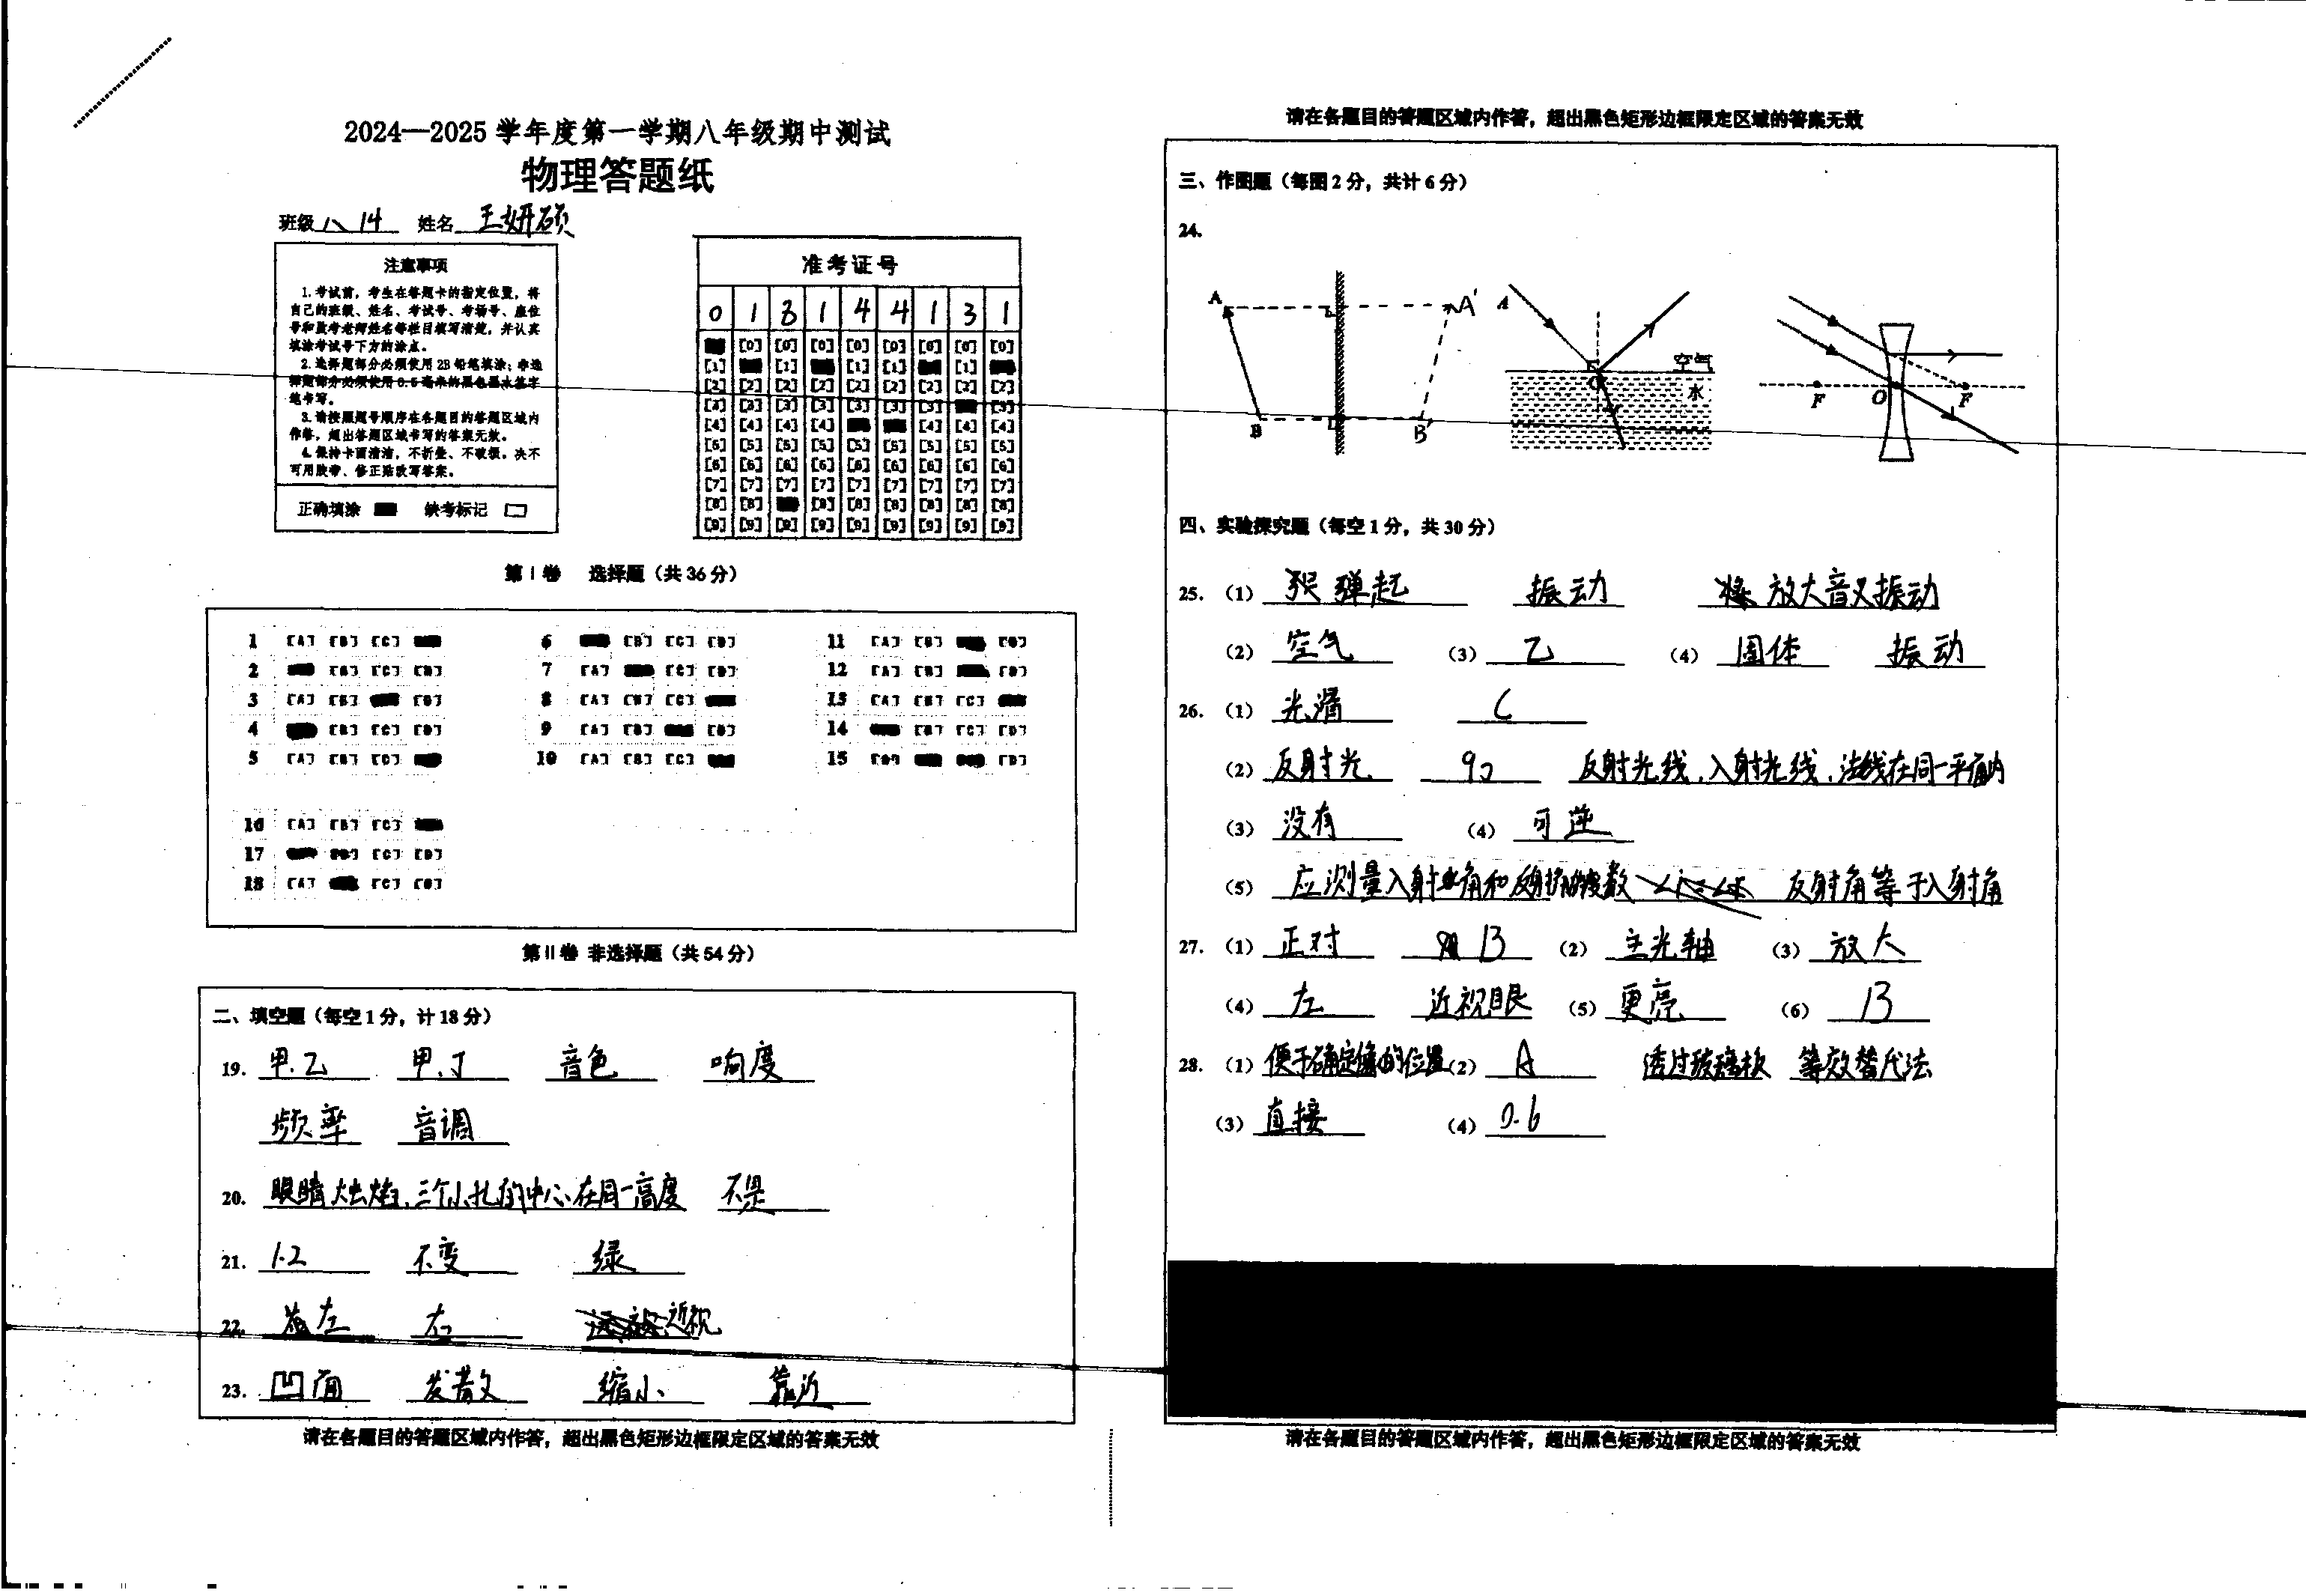 2024—2025 学年度第一学期八年级期中测试
物理答题纸
班级 八 14 姓名 王妍硕
注意事项
1.考试前，考生在答题卡的指定位置，将
自己的班级、姓名、考试号、考场号、座位
号和监考老师姓名等栏目填写清楚，并认真
填涂考试号下方的涂点。
2.选择题部分必须使用 2B 铅笔填涂；非选
择题部分必须使用 0.5 毫米的黑色墨水签字
笔书写。
3.请按照题号顺序在各题目的答题区域内
作答，超出答题区域书写的答案无效。
4.保持卡面清洁，不折叠、不破损。决不
可用胶带、修正贴改写答案。
正确填涂 缺考标记
准考证号
0 1 8 1 4 4 1 3 1
[0] [0] [0] [0] [0] [0] [0] [0]
[1] [1] [1] [1] [1]
[2] [2] [2] [2] [2] [2] [2] [2] [2]
[3] [3] [3] [3] [3] [3] [3] [3]
[4] [4] [4] [4] [4] [4] [4]
[5] [5] [5] [5] [5] [5] [5] [5] [5]
[6] [6] [6] [6] [6] [6] [6] [6] [6]
[7] [7] [7] [7] [7] [7] [7] [7] [7]
[8] [8] [8] [8] [8] [8] [8] [8]
[9] [9] [9] [9] [9] [9] [9] [9] [9]
第Ⅰ卷 选择题（共 36 分）
1 [A] [B] [C] 6 [B] [C] [D] 11 [A] [B] [D]
2 [B] [C] [D] 7 [A] [C] [D] 12 [A] [B] [D]
3 [A] [B] [D] 8 [A] [B] [C] 13 [A] [B] [C]
4 [B] [C] [D] 9 [A] [B] [D] 14 [B] [C] [D]
5 [A] [B] [C] 10 [A] [B] [C] 15 [A] [D]
16 [A] [B] [C]
17 [C] [D]
18 [A] [C] [D]
第Ⅱ卷 非选择题（共 54 分）
二、填空题（每空 1 分，计 18 分）
19. 甲.乙 甲.丁 音色 响度
频率 音调
20. 眼睛.火焰.三个小孔的中心在同一高度 不是
21. 1.2 不变 绿
22. 左 右 近视
23. 凹面 发散 缩小 靠近
请在各题目的答题区域内作答，超出黑色矩形边框限定区域的答案无效
请在各题目的答题区域内作答，超出黑色矩形边框限定区域的答案无效
三、作图题（每图 2 分，共计 6 分）
24.
A A' B B'
A 空气 水 O
F O F
四、实验探究题（每空 1 分，共 30 分）
25.（1） 弹起 振动 放大音叉振动
（2） 空气 （3） 乙 （4） 固体 振动
26.（1） 光滑 C
（2） 反射光 90 反射光线.入射光线.法线在同一平面内
（3） 没有 （4） 可逆
（5） 应测量入射角和反射角的度数 反射角等于入射角
27.（1） 正对 B （2） 主光轴 （3） 放大
（4） 左 近视眼 （5） 更亮 （6） B
28.（1） 便于确定像的位置 （2） A 透过玻璃板 等效替代法
（3） 直接 （4） 0.6
请在各题目的答题区域内作答，超出黑色矩形边框限定区域的答案无效